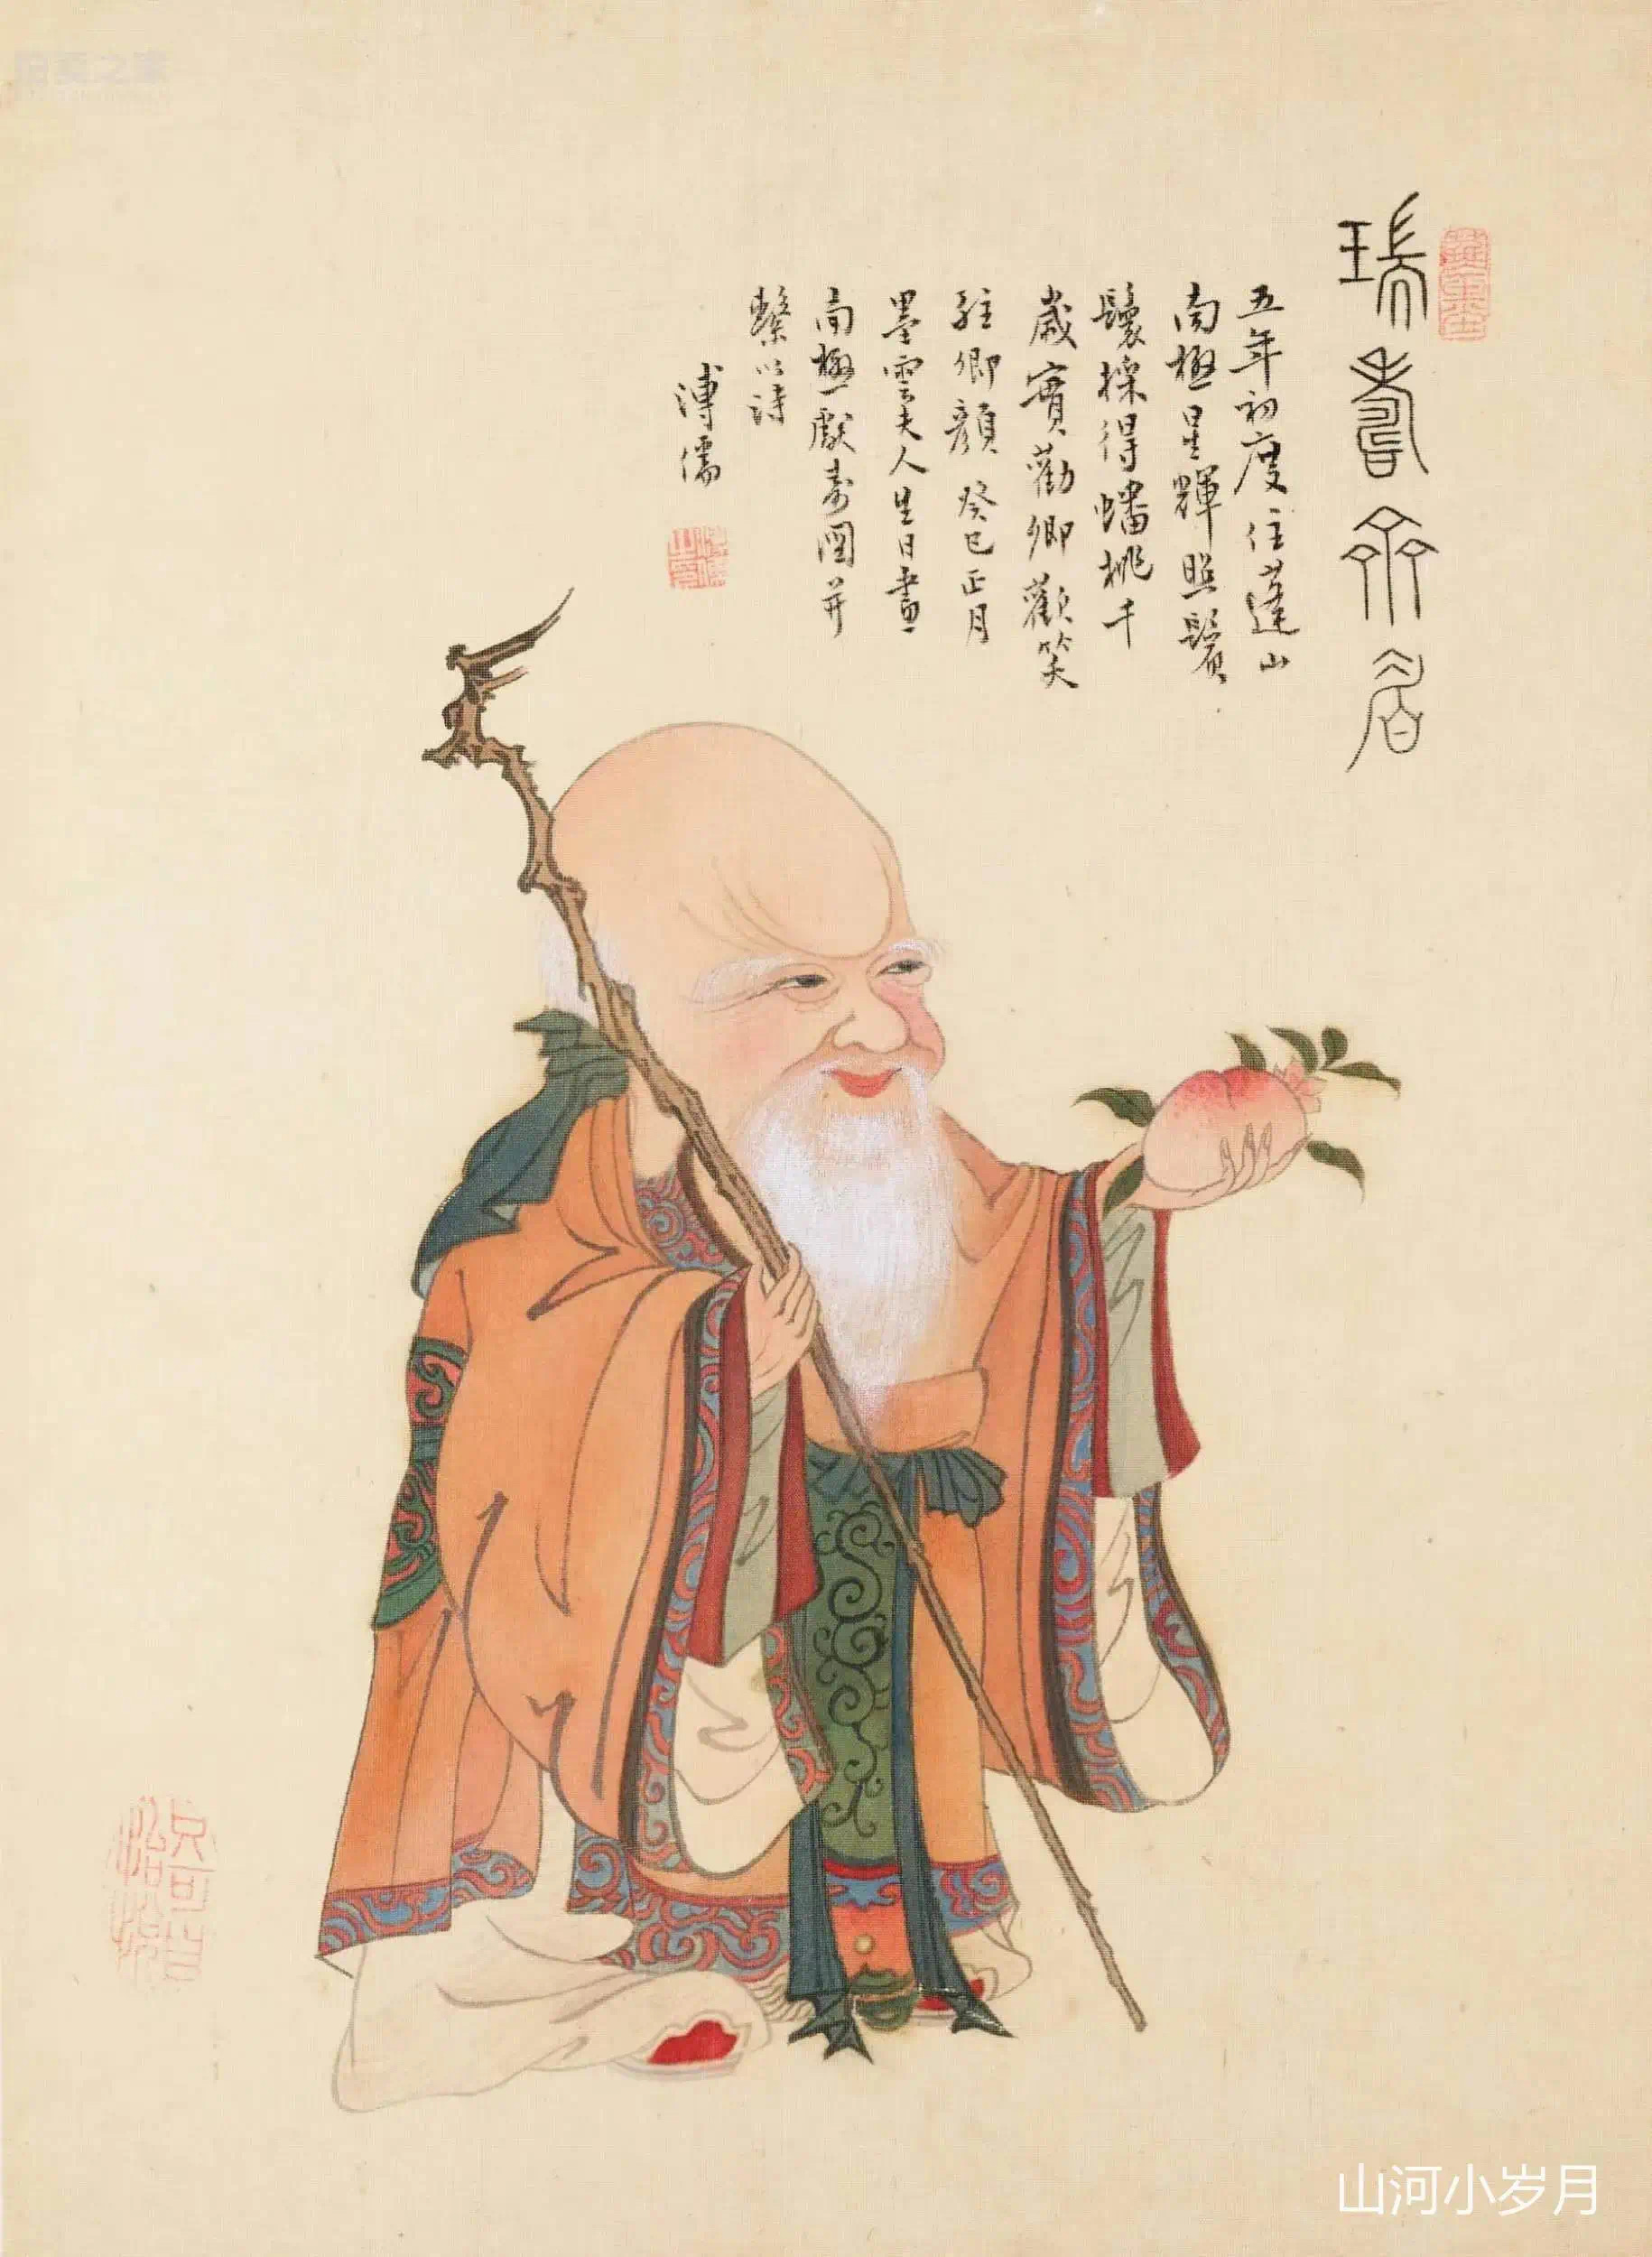 瑞壽齊眉
五年初度住蓬山
南極星輝照鬢
鬟採得蟠桃千
歲實勸卿歡笑
駐卿顏 癸巳正月
墨雲夫人生日畫
南極獻壽圖并
繫以詩
溥儒
只可自怡悅
山河小岁月